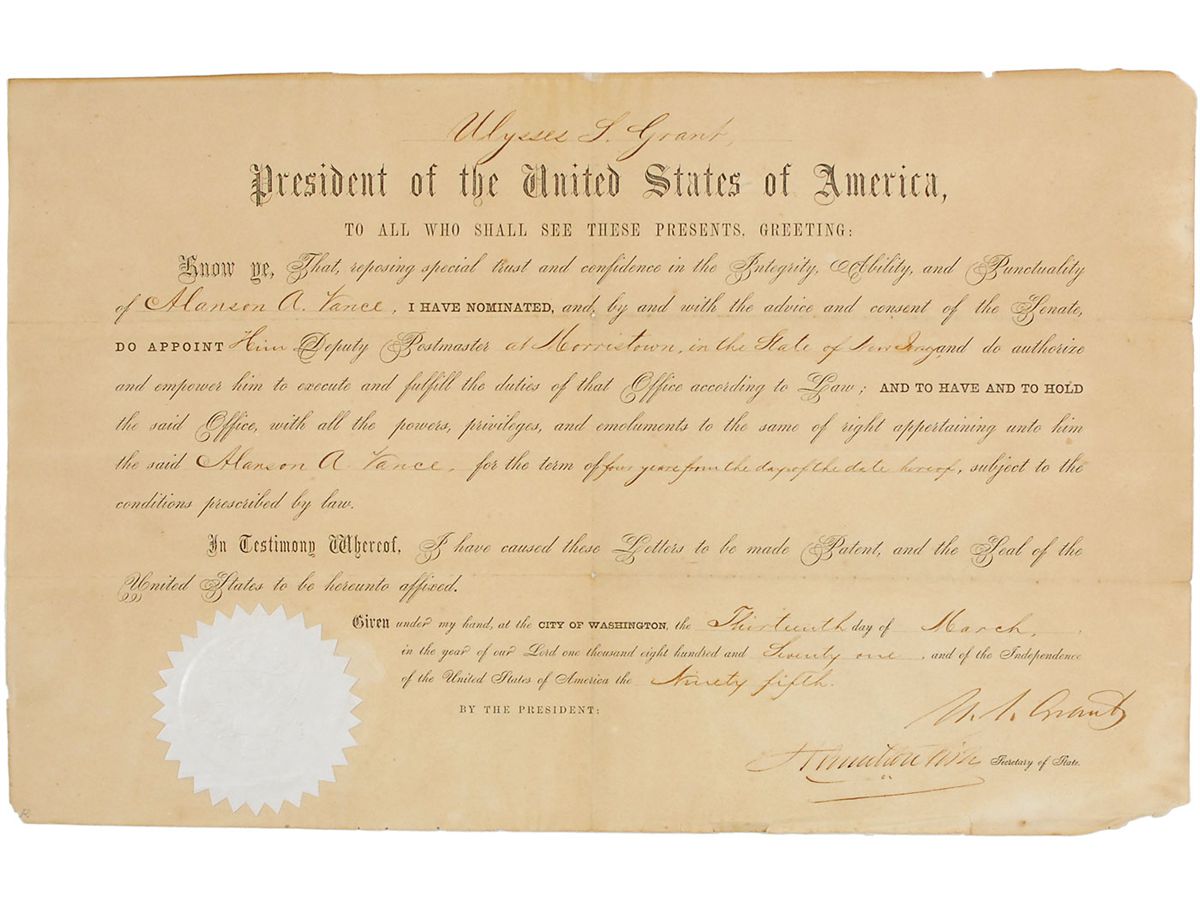 Ulysses S. Grant,
President of the United States of America,
TO ALL WHO SHALL SEE THESE PRESENTS, GREETING:
Know ye, That, reposing special trust and confidence in the Integrity, Ability, and Punctuality
of Alanson A. Vance, I HAVE NOMINATED, and, by and with the advice and consent of the Senate,
DO APPOINT Him Deputy Postmaster at Morristown, in the State of New Jersey, and do authorize
and empower him to execute and fulfill the duties of that Office according to Law; AND TO HAVE AND TO HOLD
the said Office, with all the powers, privileges, and emoluments to the same of right appertaining unto him
the said Alanson A. Vance, for the term of four years from the day of the date hereof, subject to the
conditions prescribed by law.
In Testimony Whereof, I have caused these Letters to be made Patent, and the Seal of the
United States to be hereunto affixed.
Given under my hand, at the CITY OF WASHINGTON, the Thirteenth day of March,
in the year of our Lord one thousand eight hundred and Seventy one, and of the Independence
of the United States of America the Ninety fifth.
BY THE PRESIDENT:
U. S. Grant
Hamilton Fish Secretary of State.